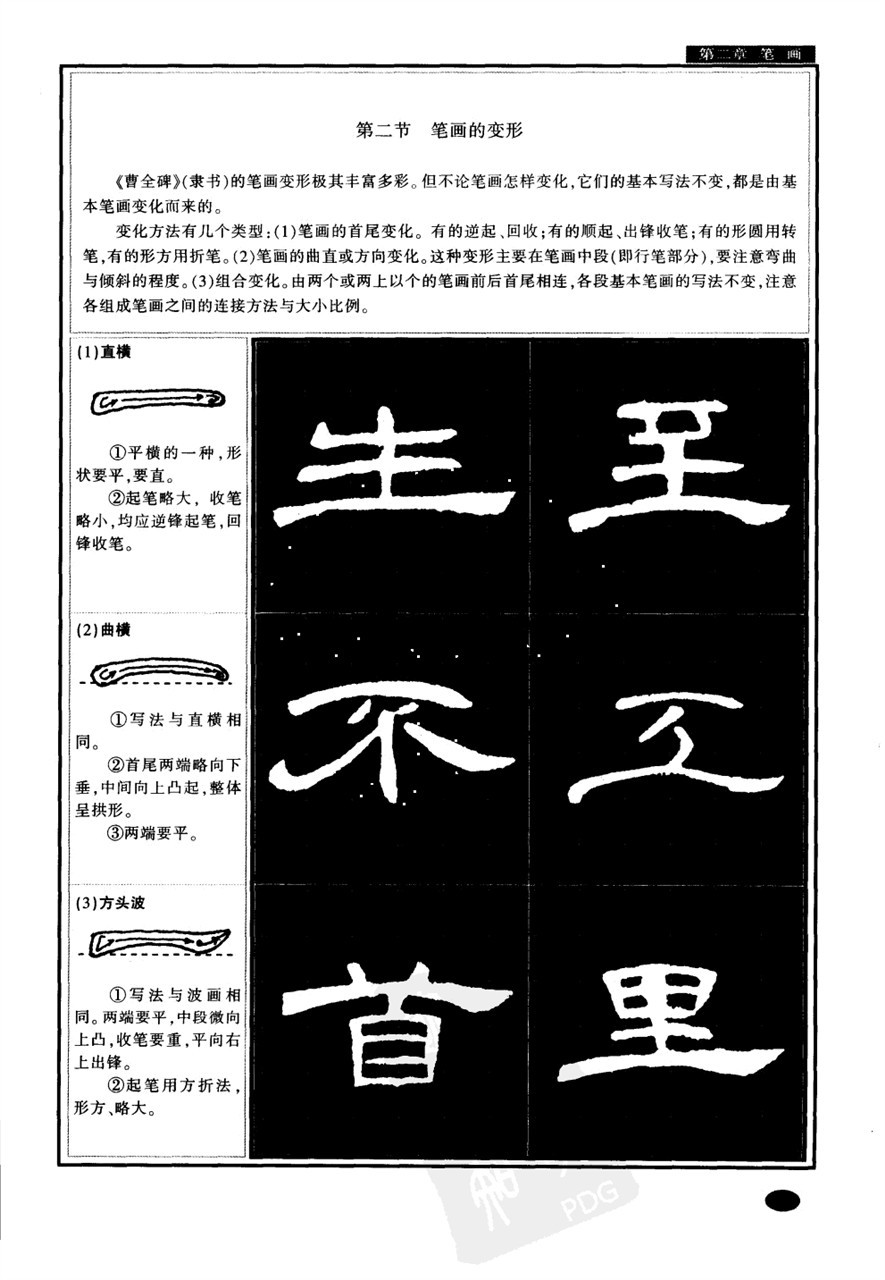 第二章 笔画
第二节 笔画的变形
《曹全碑》(隶书)的笔画变形极其丰富多彩。但不论笔画怎样变化,它们的基本写法不变,都是由基
本笔画变化而来的。
变化方法有几个类型:(1)笔画的首尾变化。有的逆起、回收;有的顺起、出锋收笔;有的形圆用转
笔,有的形方用折笔。(2)笔画的曲直或方向变化。这种变形主要在笔画中段(即行笔部分),要注意弯曲
与倾斜的程度。(3)组合变化。由两个或两上以个的笔画前后首尾相连,各段基本笔画的写法不变,注意
各组成笔画之间的连接方法与大小比例。
(1)直横
①平横的一种,形
状要平,要直。
②起笔略大, 收笔
略小,均应逆锋起笔,回
锋收笔。
生 至
(2)曲横
①写法与直横相
同。
②首尾两端略向下
垂,中间向上凸起,整体
呈拱形。
③两端要平。
不 工
(3)方头波
①写法与波画相
同。两端要平,中段微向
上凸,收笔要重,平向右
上出锋。
②起笔用方折法,
形方、略大。
首 里
PDG